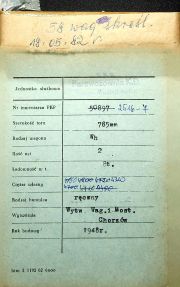 58 wag skreśl.
18.05.82 r.
Jednostka służbowa
Nr inwentarza PKP 50897 2516-7
Szerokość toru 785mm
Rodzaj wagonu Wh
Ilość osi 2
Ładowność w t. 5t.
Ciężar własny
Rodzaj hamulca ręczny
Wytwórnia Wytw. Wag. i Most. Chorzów
Rok budowy 1948r.